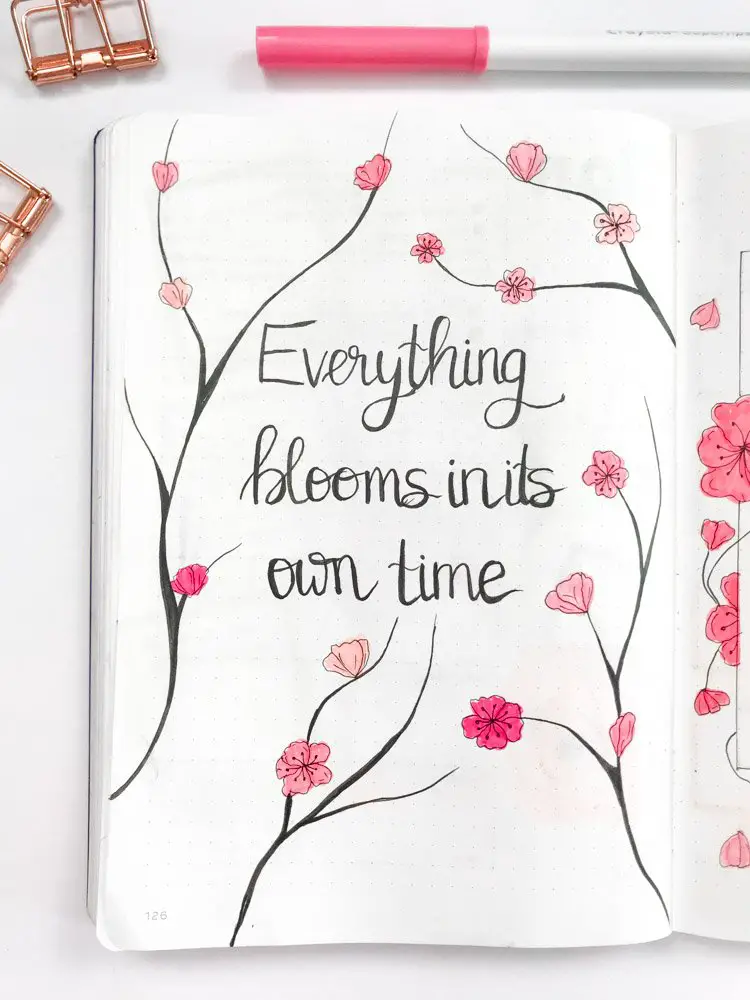 Everything
blooms in its
own time
126